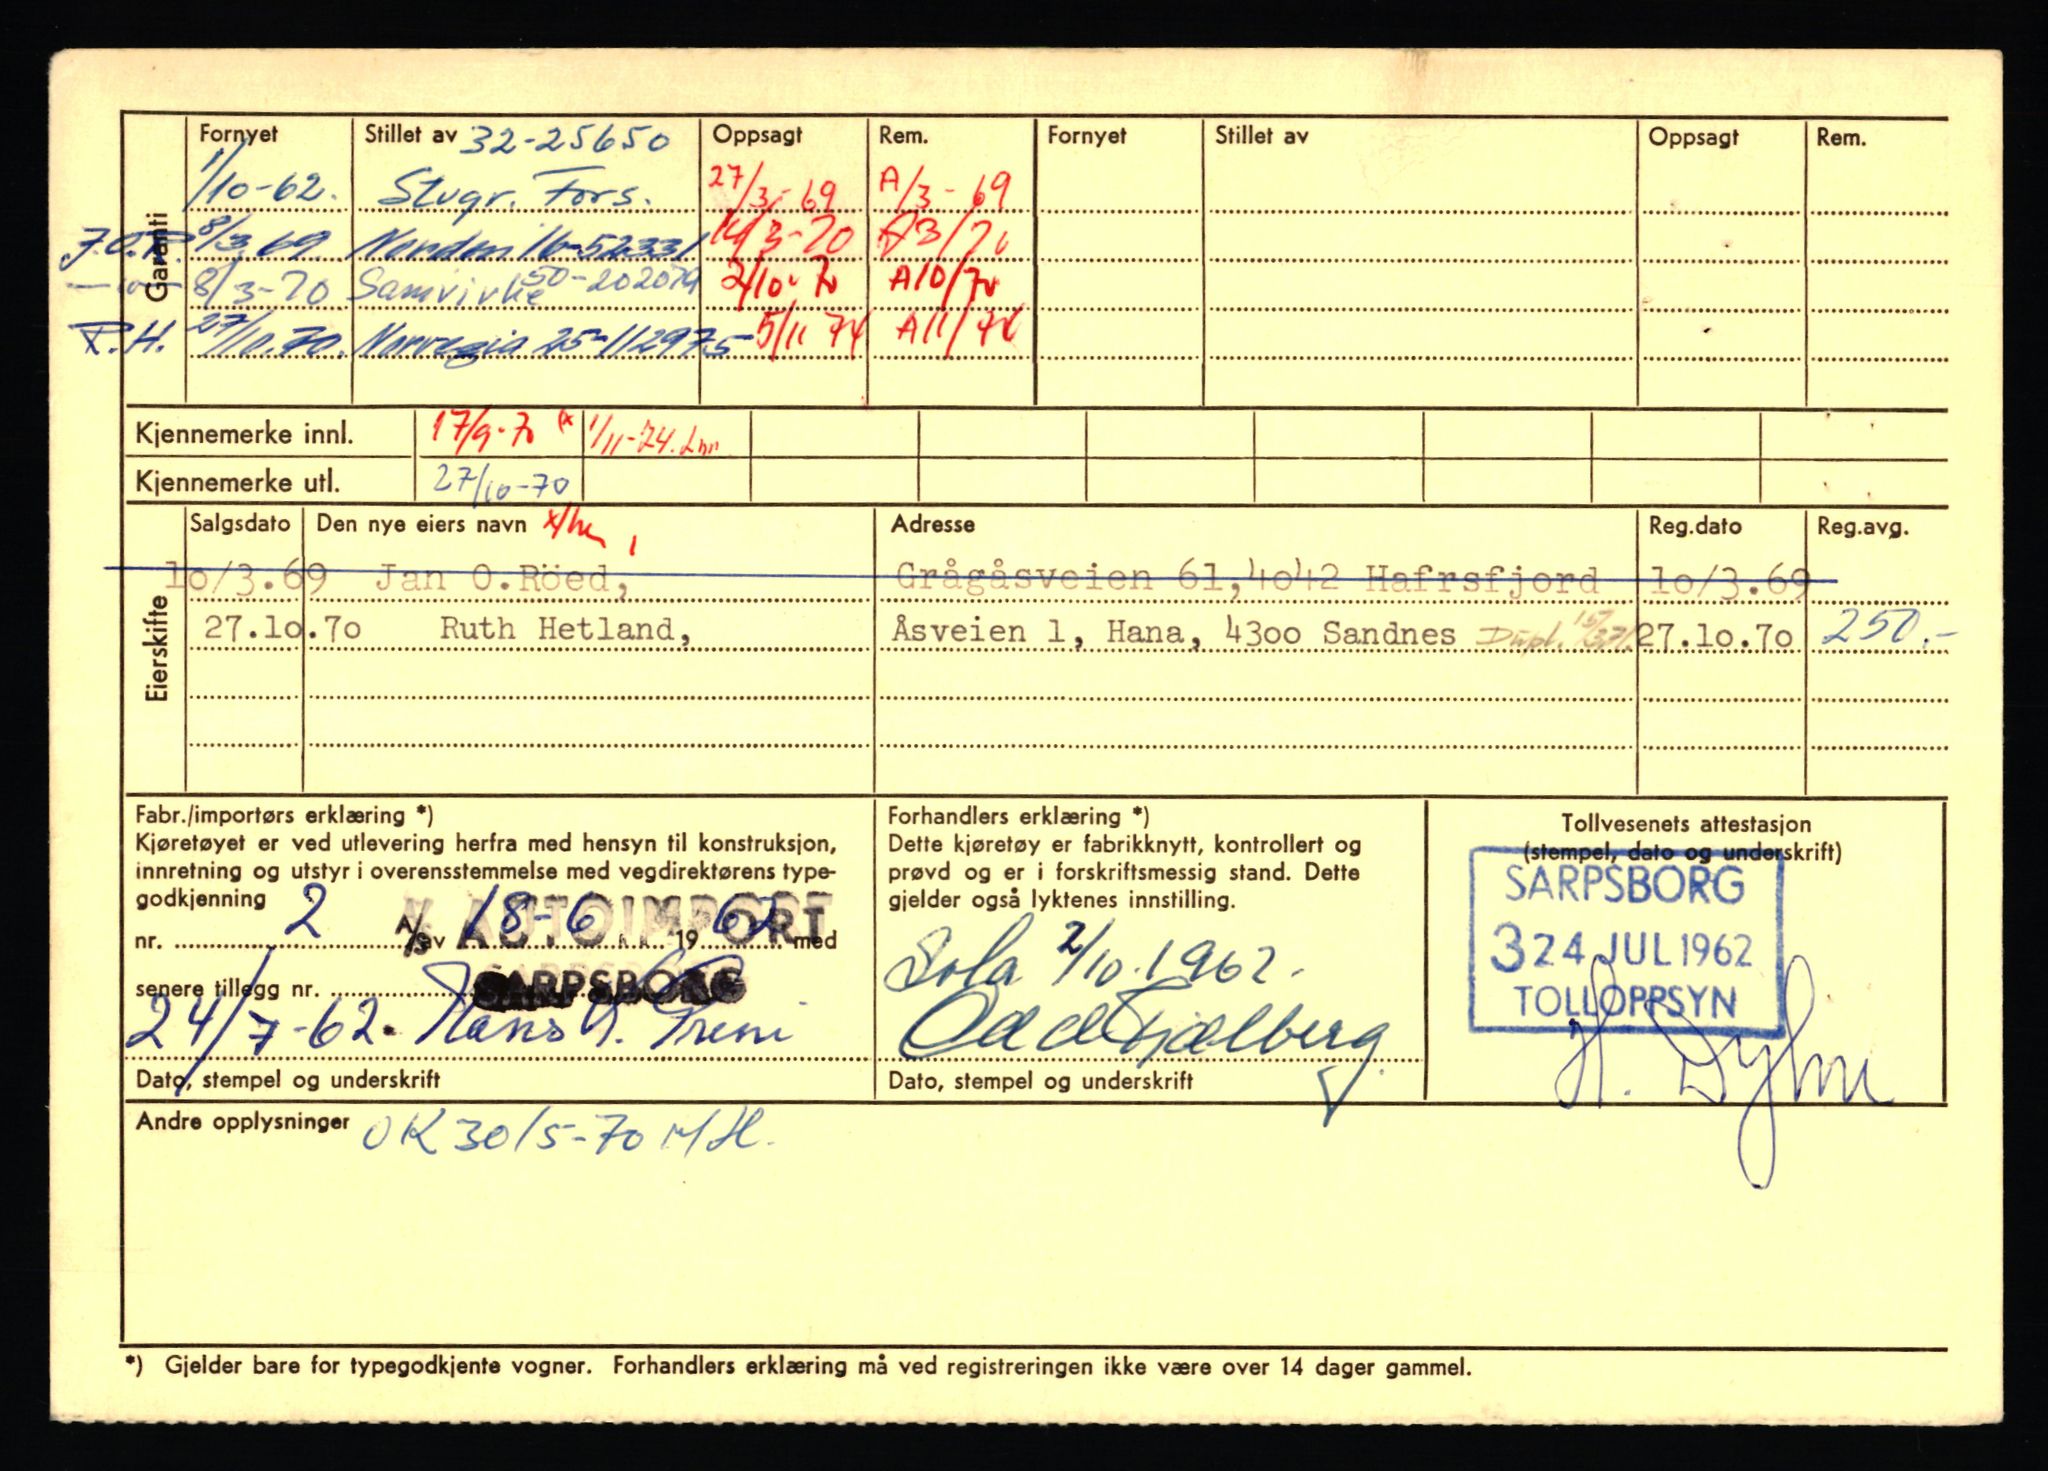 Garanti
Fornyet Stillet av 32-25650 Oppsagt Rem. Fornyet Stillet av Oppsagt Rem.
1/10-62. Stvgr. Fors. 27/3-69 A/3-69
J.O.R. 8/3.69. Norden 16-52331 14/3-70 A3/70
—"— 8/3-70 Samvirke 50-202079 2/10-70 A10/70
R.H. 27/10.70. Norvegia 25-112975 5/11 74 A11/74
Kjennemerke innl. 17/9-70 1/11-74.
Kjennemerke utl. 27/10-70
Eierskifte
Salgsdato Den nye eiers navn Adresse Reg.dato Reg.avg.
10/3.69 Jan O.Röed, Grågåsveien 61,4042 Hafrsfjord 10/3.69
27.10.70 Ruth Hetland, Åsveien 1, Hana, 4300 Sandnes Dupl. 27.10.70 250.-
Fabr./importørs erklæring *)
Kjøretøyet er ved utlevering herfra med hensyn til konstruksjon,
innretning og utstyr i overensstemmelse med vegdirektørens type-
godkjenning
nr. 2 av 18-6 1962 med
A/S AUTOIMPORT
SARPSBORG
senere tillegg nr.
24/7-62. Hans
Dato, stempel og underskrift
Forhandlers erklæring *)
Dette kjøretøy er fabrikknytt, kontrollert og
prøvd og er i forskriftsmessig stand. Dette
gjelder også lyktenes innstilling.
Sola 2/10.1962.
Odd Fjælberg
Dato, stempel og underskrift
Tollvesenets attestasjon
(stempel, dato og underskrift)
SARPSBORG
3 24 JUL 1962
TOLLOPPSYN
H.
Andre opplysninger OK 30/5-70 MH.
*) Gjelder bare for typegodkjente vogner. Forhandlers erklæring må ved registreringen ikke være over 14 dager gammel.